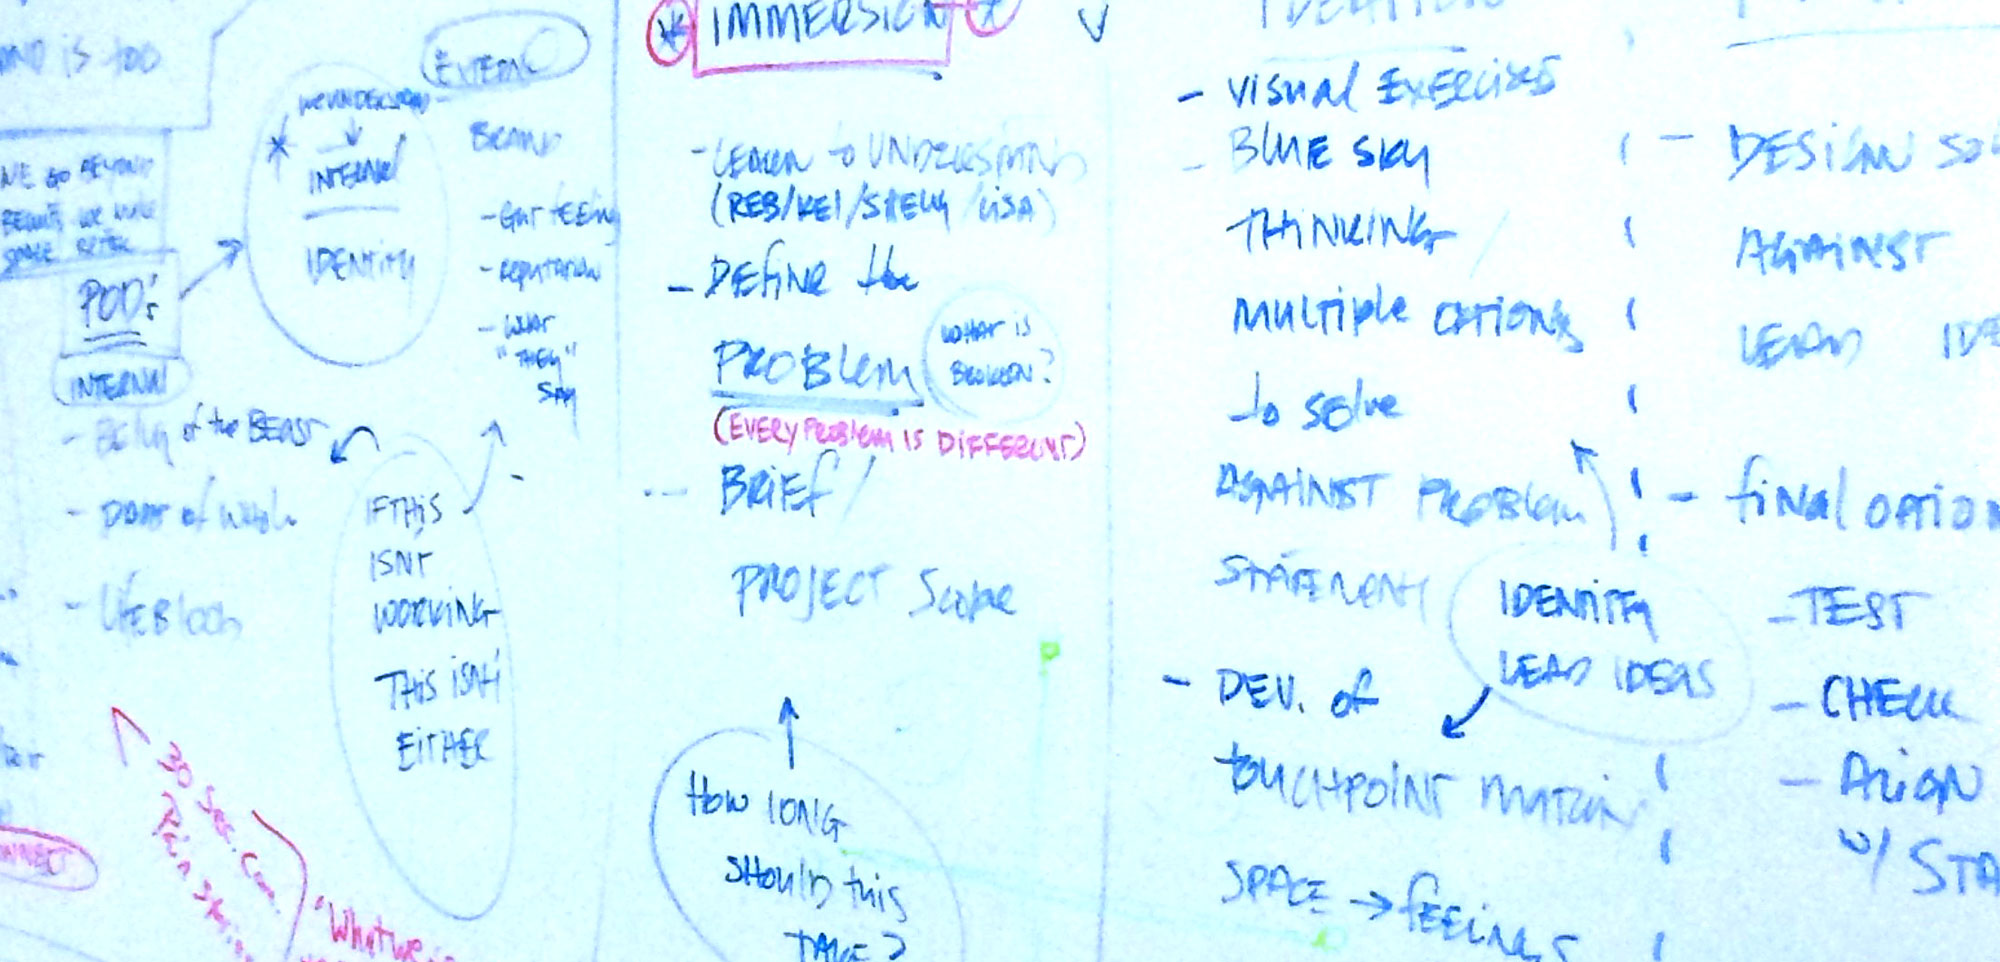 IS TOO
WE GO BEYOND
POD's
INTERNAL
- BELLY of the BEAST
- LIFEBLOOD
EXTERNAL
WE UNDERSTAND
INTERNAL
IDENTITY
BRAND
- GUT FEELING
- REPUTATION
- WHAT
"THEY"
SAY
IF THIS
ISNT
WORKING
THIS ISN'T
EITHER
30 Sec.
"What we
IMMERSION
- LEARN to UNDERSTAND
(REB/KEI/SHELLY/LISA)
- DEFINE the
PROBLEM
WHAT IS
BROKEN?
(EVERY PROBLEM IS DIFFERENT)
- BRIEF/
PROJECT Scope
HOW LONG
SHOULD this
TAKE?
IDEATION
- Visual EXERCISES
- BLUE SKY
THINKING/
MULTIPLE OPTIONS
to solve
AGAINST PROBLEM
STATEMENT
IDENTITY
LEAD IDEAS
- DEV. of
touchpoint MATRIX
SPACE → feelings
- DESIGN
AGAINST
LEAD
- final OPTION
- TEST
- CHECK
- ALIGN
w/ STA